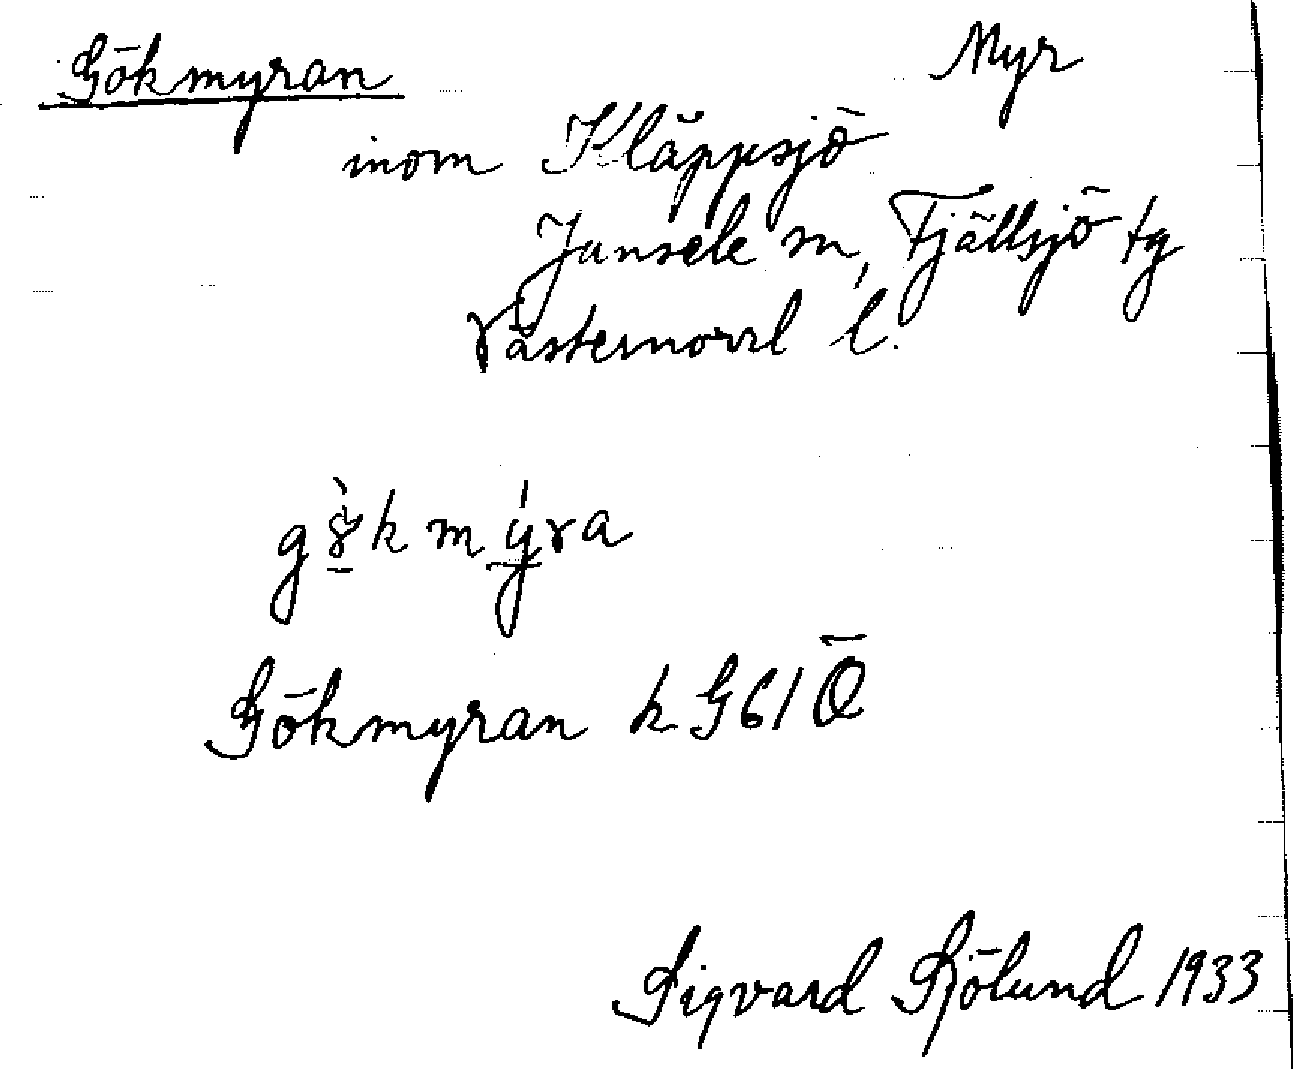 Gökmyran Myr
inom Kläppsjö
Junsele sn, Fjällsjö tg
Västernorrl l.
Gökmyran k G61 Ö
Sigvard Sjölund 1933